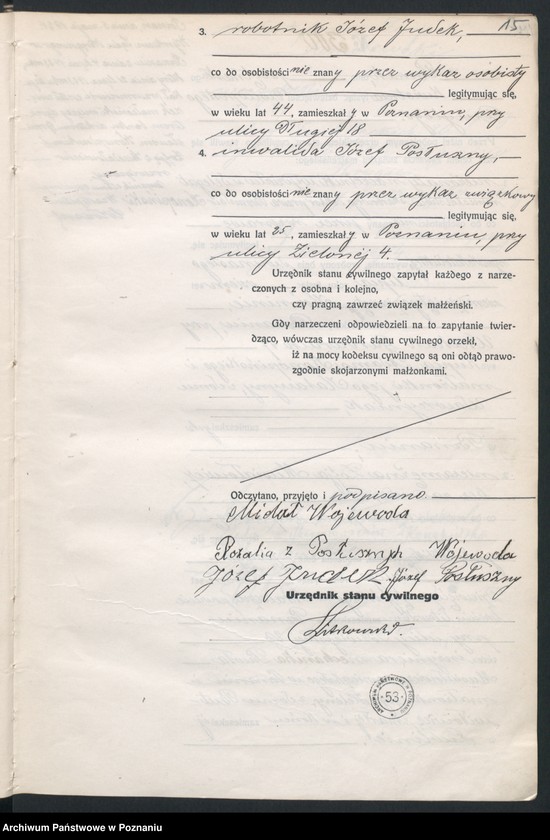 15
3. robotnik Józef Judek,
co do osobistości nie znany przez wykaz osobisty
legitymując się,
w wieku lat 44, zamieszkały w Poznaniu, przy
ulicy Długiej 18
4. inwalida Józef Posłuszny,
co do osobistości nie znany przez wykaz związkowy
legitymując się,
w wieku lat 25, zamieszkały w Poznaniu, przy
ulicy Zielonej 4.
Urzędnik stanu cywilnego zapytał każdego z narze-
czonych z osobna i kolejno,
czy pragną zawrzeć związek małżeński.
Gdy narzeczeni odpowiedzieli na to zapytanie twier-
dząco, wówczas urzędnik stanu cywilnego orzekł,
iż na mocy kodeksu cywilnego są oni odtąd prawo-
zgodnie skojarzonymi małżonkami.
Odczytano, przyjęto i podpisano
Michał Wojewoda
Rozalia z Posłusznych Wojewoda
Józef Judek Józef Posłuszny
Urzędnik stanu cywilnego
ARCHIWUM PAŃSTWOWE W POZNANIU
53
Archiwum Państwowe w Poznaniu